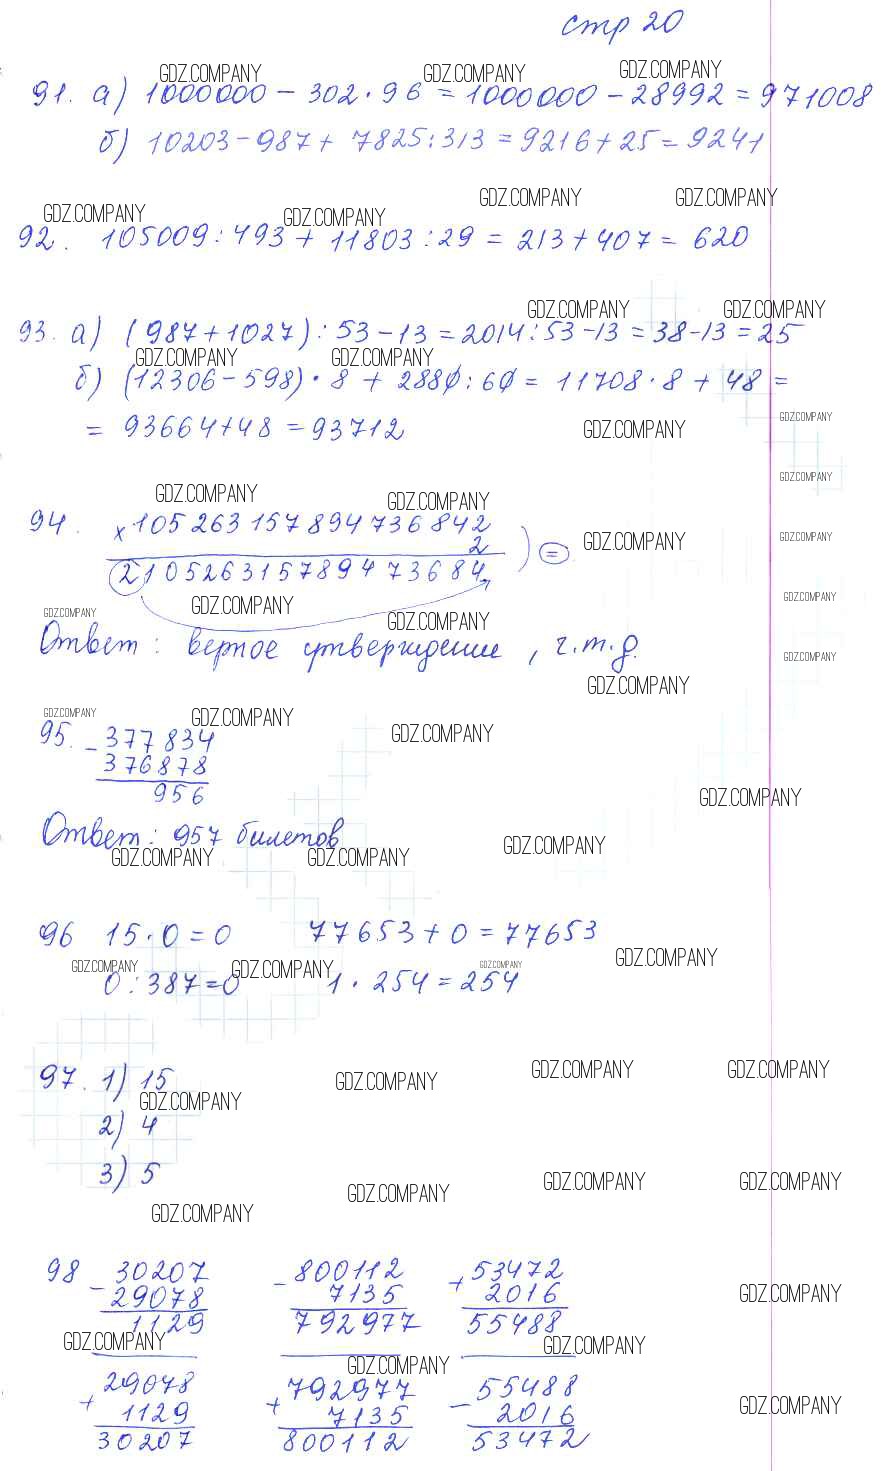 стр 20
91. а) 1000000 - 302 · 96 = 1000000 - 28992 = 971008
б) 10203 - 987 + 7825 : 313 = 9216 + 25 = 9241
92. 105009 : 493 + 11803 : 29 = 213 + 407 = 620
93. а) (987 + 1027) : 53 - 13 = 2014 : 53 - 13 = 38 - 13 = 25
б) (12306 - 598) · 8 + 2880 : 60 = 11708 · 8 + 48 =
= 93664 + 48 = 93712
94. x 105263157894736842
2 ) =
210526315789473684
Ответ: верное утверждение, ч.т.д.
95. - 377834
376878
956
Ответ: 957 билетов
96 15 · 0 = 0 77653 + 0 = 77653
0 : 387 = 0 1 · 254 = 254
97. 1) 15
2) 4
3) 5
98 - 30207 - 800112 + 53472
29078 7135 2016
1129 792977 55488
+ 29078 + 792977 - 55488
1129 7135 2016
30207 800112 53472
GDZ.COMPANY